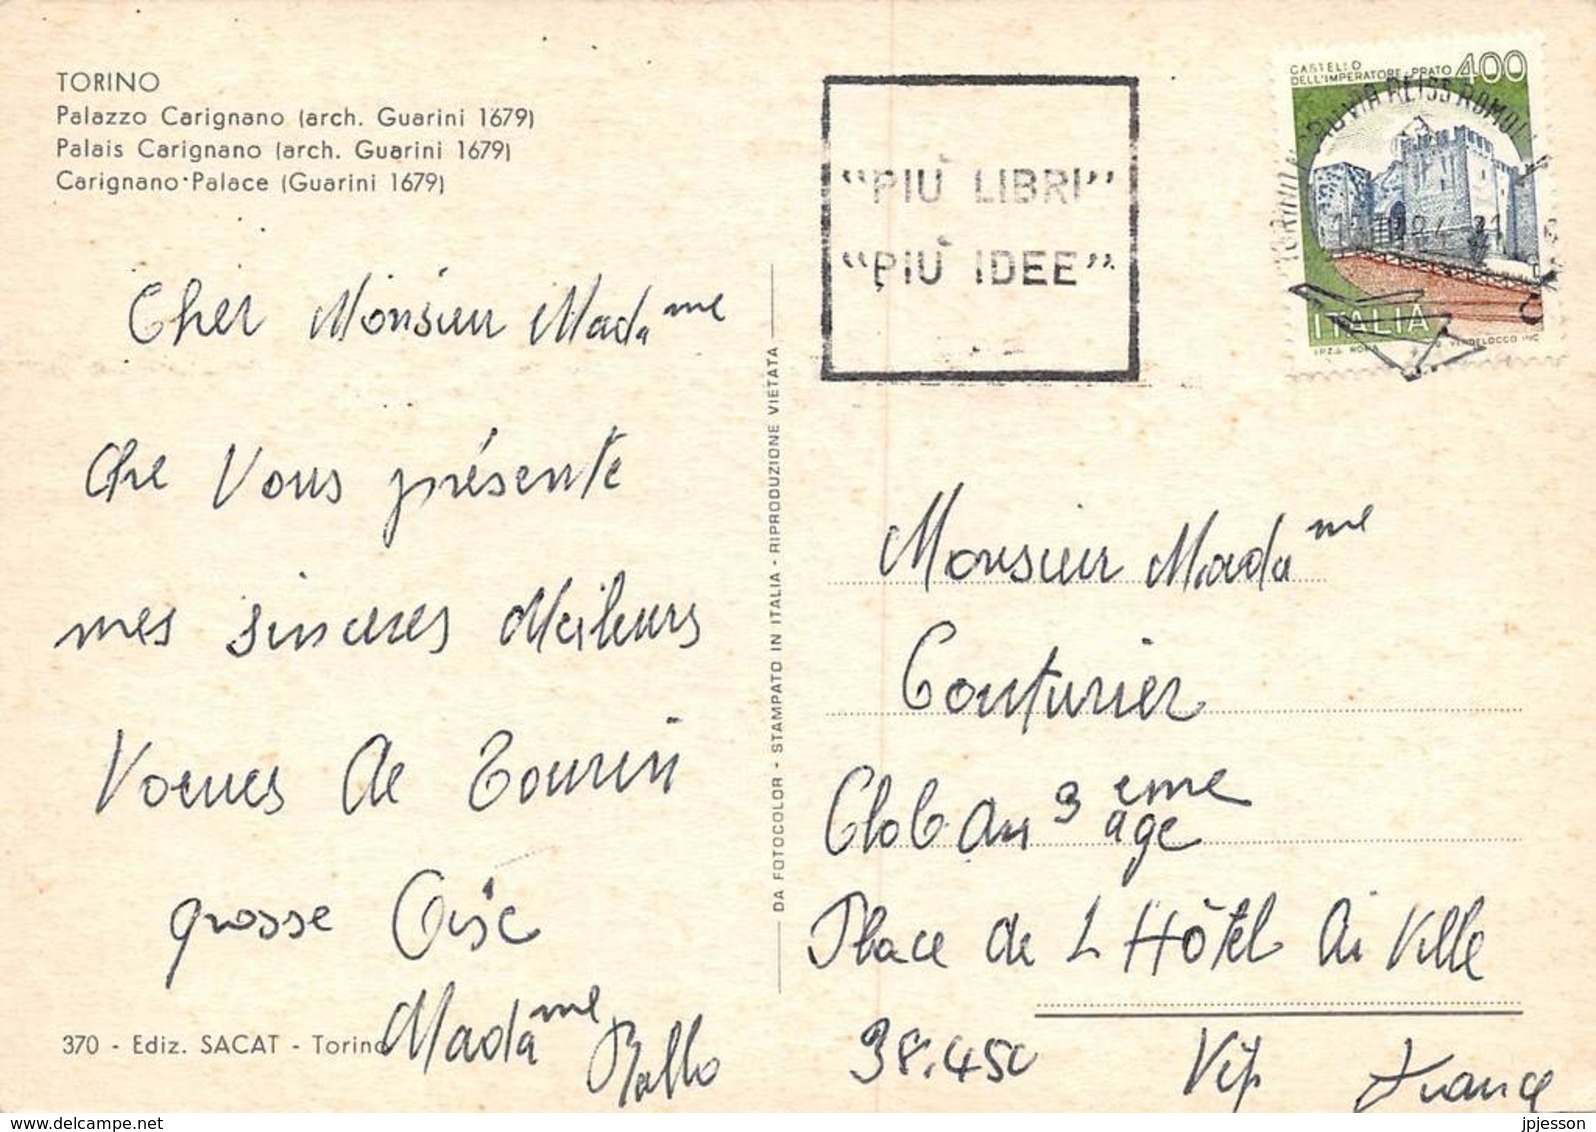 TORINO
Palazzo Carignano (arch. Guarini 1679)
Palais Carignano (arch. Guarini 1679)
Carignano Palace (Guarini 1679)
Cher Monsieur Mada me
Che Vous présente
mes sinceres Meileurs
Voeues de Tourin
grosse Bise
Madame
370 - Ediz. SACAT - Torino
DA FOTOCOLOR - STAMPATO IN ITALIA - RIPRODUZIONE VIETATA
"PIÙ LIBRI"
"PIÙ IDEE"
CASTELLO
DELL'IMPERATORE - PRATO 400
VIA REISS ROMOLI
ITALIA
I.P.Z.S. ROMA
VANGELOCCO INC.
Monsieur Mada me
Couturier
Clob du 3 eme
age
Place de L Hôtel di Ville
38.450 Vif France
jpjesson